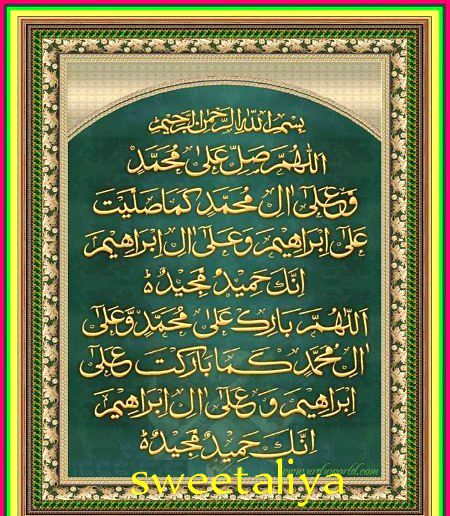 بِسْمِ اللهِ الرَّحْمٰنِ الرَّحِيْمِ
اَللّٰهُمَّ صَلِّ عَلٰی مُحَمَّدٍ
وَّعَلٰۤی اٰلِ مُحَمَّدٍ كَمَا صَلَّيْتَ
عَلٰۤی اِبْرَاهِيْمَ وَعَلٰۤی اٰلِ اِبْرَاهِيْمَ
اِنَّكَ حَمِيْدٌ مَّجِيْدٌ ہ
اَللّٰهُمَّ بَارِكْ عَلٰی مُحَمَّدٍ وَّعَلٰۤی
اٰلِ مُحَمَّدٍ كَمَا بَارَكْتَ عَلٰۤی
اِبْرَاهِيْمَ وَعَلٰۤی اٰلِ اِبْرَاهِيْمَ
اِنَّكَ حَمِيْدٌ مَّجِيْدٌ ہ
www.urduworld.com
sweetaliya